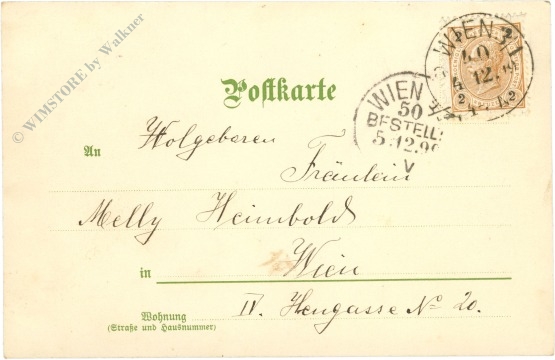 © WIMSTORE by Walkner
Postkarte
WIEN
40
4.12.
2 2
2 2
WIEN
50
BESTELL
5.12.99
V
An Wolgeboren
Fräulein
Melly Heimbold
in Wien
Wohnung
(Straße und Hausnummer)
IV. Heugasse No 20.